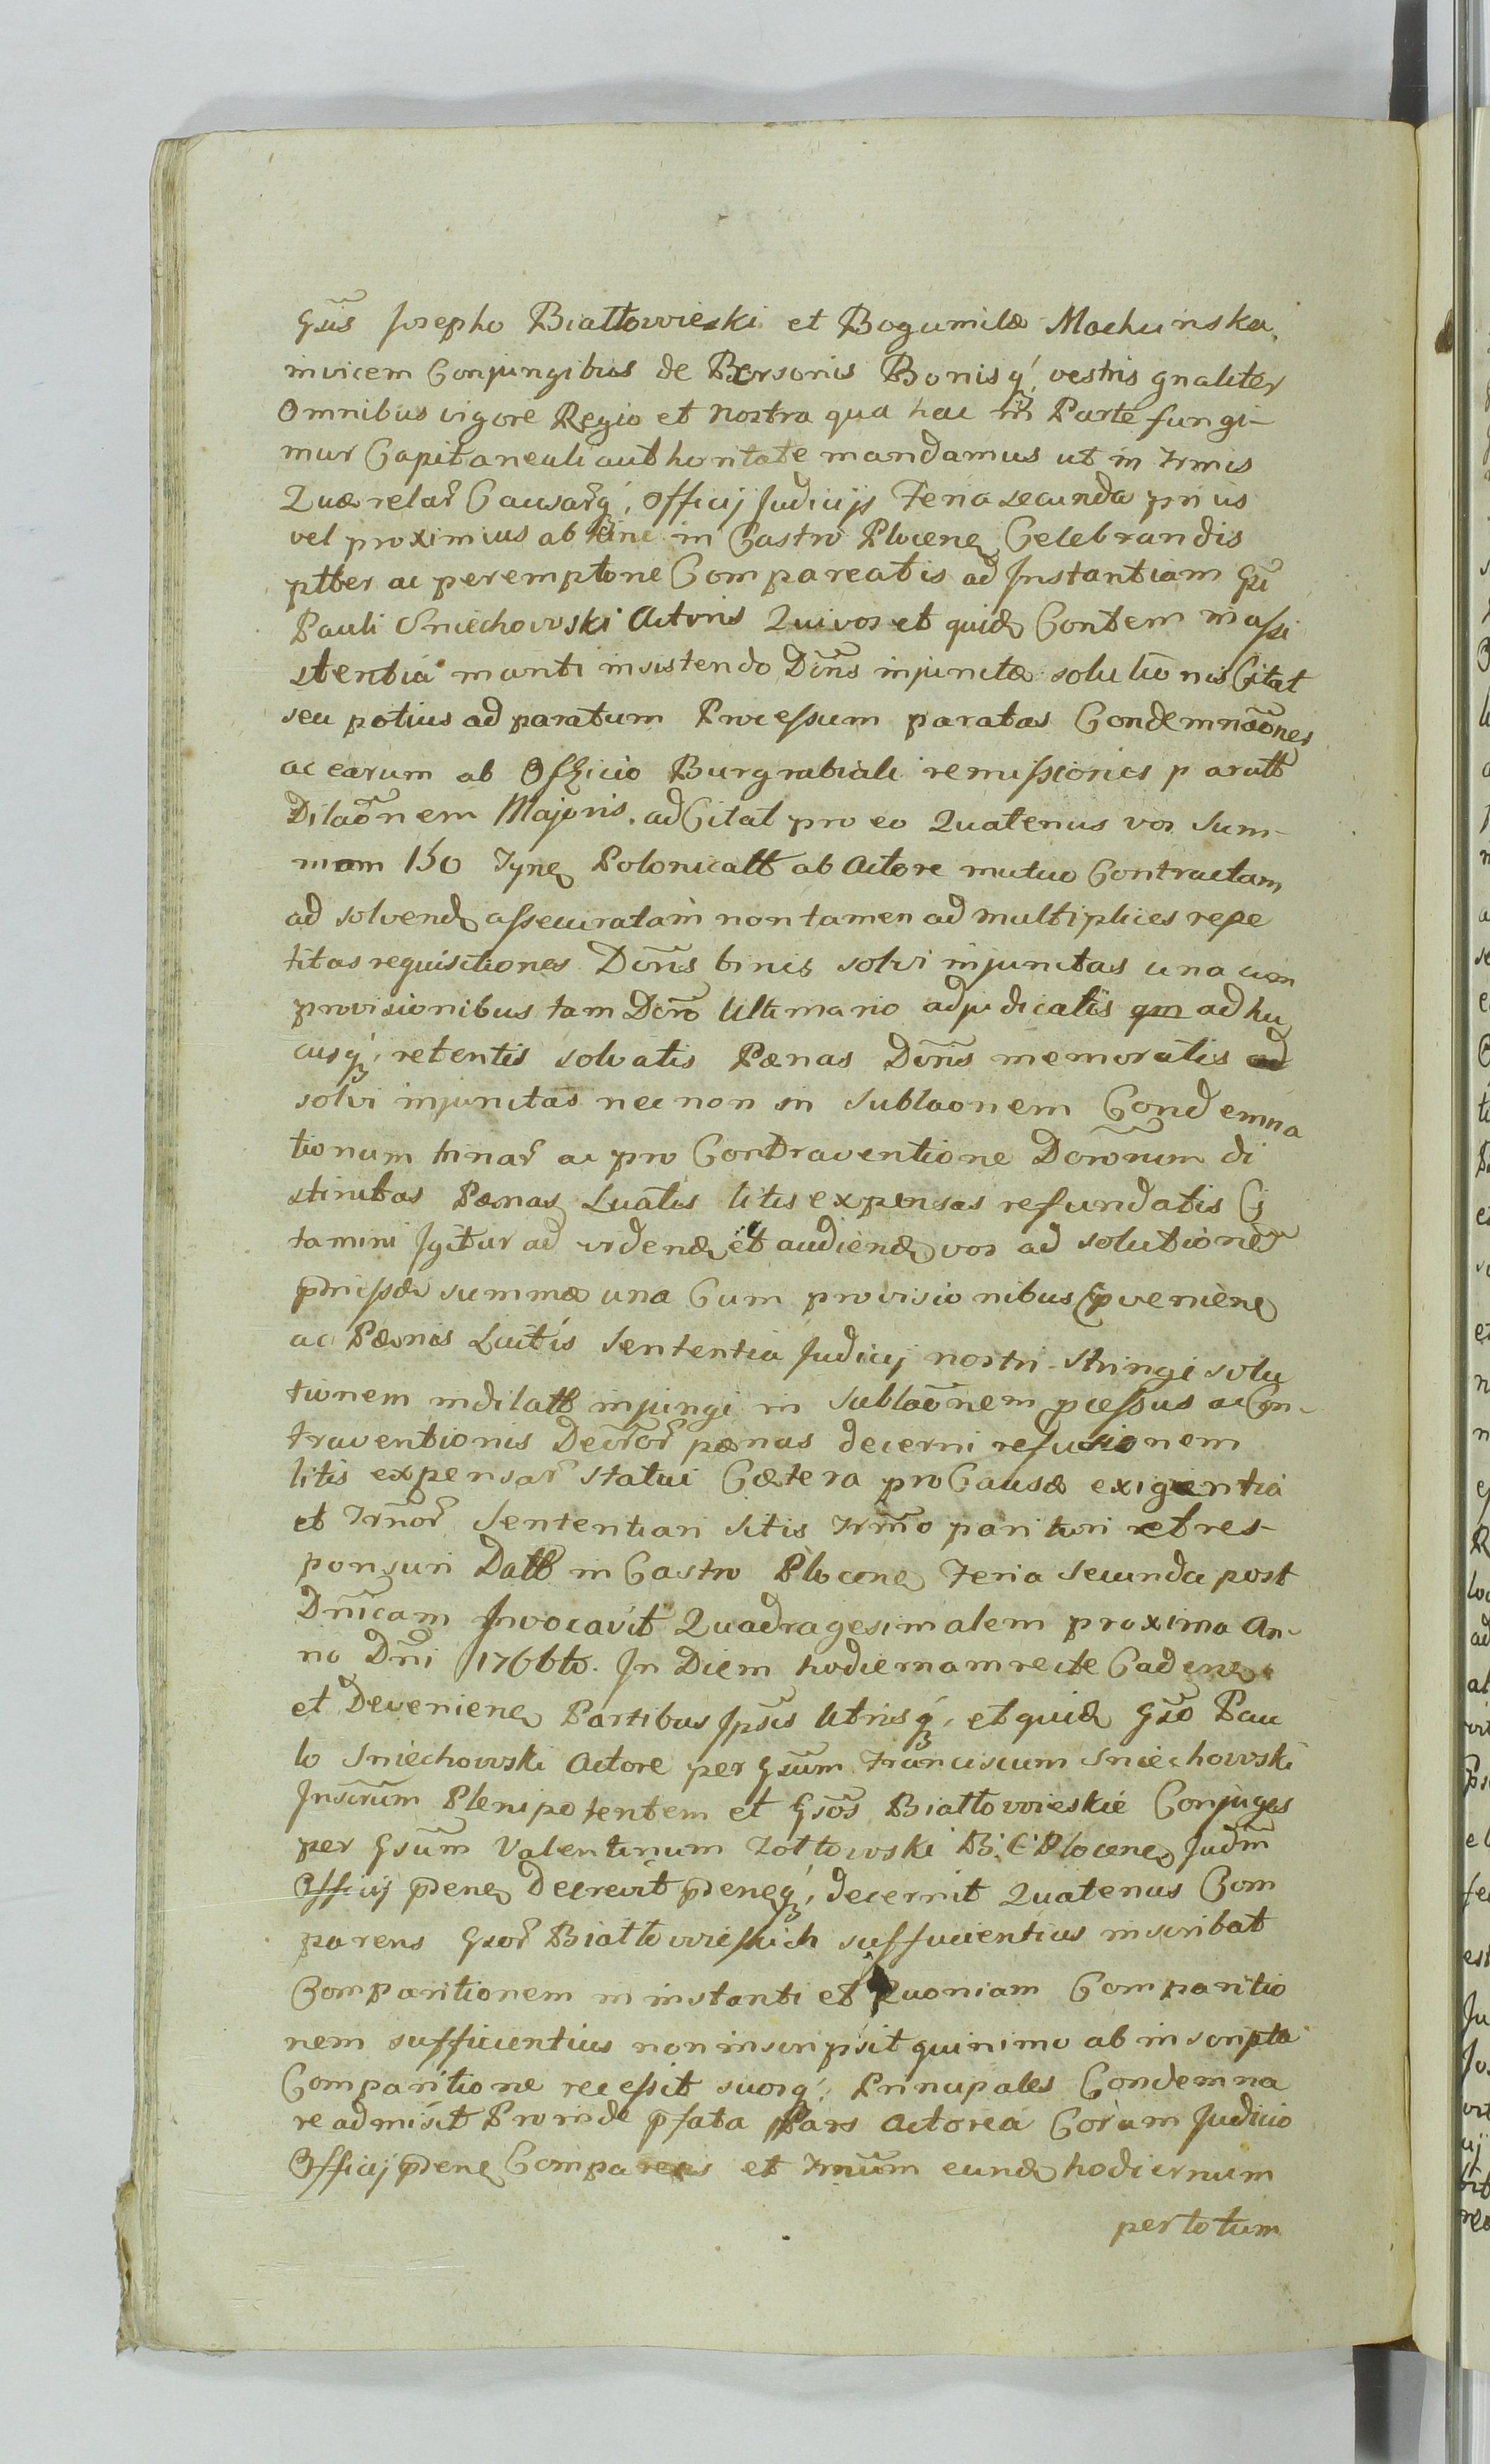 Gsis Josepho Białłowieski et Bogumilæ Mochinska
invicem Conjungibus de Personis Bonisq́ vestris gnaliter
Omnibus vigore Regio et nostra qua hac in Parte fungi-
mur Capitaneali authoritate mandamus ut in trmis
Quærelar̃ Causarq́, Officij Judicijs Feria secunda prius
vel proximius abhinc in Castro Plocen Celebrandis
ptter ac peremptorie Compareatis ad Instantiam Gsi
Pauli Sniechowski Actoris Qui vos et quid Contem in assi
stentia manti insistendo Dcris injunctæ solutionis Citat
seu potius ad paratum Processum paratas Condemnãones
ac earum ab Officio Burgrabiali remissiones paratt
Dilaõnem Majoris. ad Citat pro eo Quatenus vos Sum-
mam 150 Tyn Polonicatt ab Actore mutuo Contractam
ad solvend assecuratam non tamen ad multiplices repe
titas requisitiones Dcris binis solvi injunctas una cum
provisionibus tam Dcro Ultimario adjudicatis qm adhu
cusq́, retentis solvatis Pænas Dcris memoratis
solvi injunctas nec non in sublaonem Condemna
tionum trinar̃ ac pro Contraventione Dcrorum di
stinctas Pænas Luatis litis expensas refundatis Ci
tamini Igitur ad videnđ et audienđ vos ad solutionem
pmissæ summæ una Cum provisionibus pvenien
ac Pænis Luitis Sententia Judicij nostri stringi solu
tionem indilatt injungi in sublaõnem pcessus ac Con-
traventionis Decror̃ pænas decerni refusionem
litis expensar̃ statui Cætera pro Causæ exigentia
et Trmor̃ Sententiari Sitis Trmo parituri et res-
ponsuri Datt in Castro Plocen Feria Secunda post
Dnicam Invocavit Quadragesimalem proxima An-
no Dni 1766to. In Diem hodiernam recte Caden
et Devenien Partibus Ipsis Utrisq́, et quid Gso Pau
lo Sniechowski Actore per Gsum Franciscum Sniechowski
Inscrum Plenipotentem et Gsos Białłowieskie Conjuges
per Gsum Valentinum Zołtowski B. C. Plocen Judm
Officij pden Decrevit pdenq́, decernit Quatenus Com
parens Gsor̃ Białłowieskich sufficientius inscribat
Comparitionem in instanti et Quoniam Comparitio
nem sufficientius non inscripsit quinimo ab inscripta
Comparitione recessit suosq́, Principales Condemna
re admisit Proinde pfata Pars Actorea Coram Judicio
Officij pden Comparens et Trmum eund hodiernum
per totum